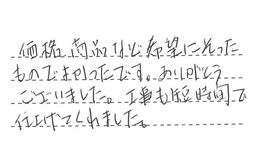 価格、商品など希望にそった
ものでよかったです。ありがとう
ございました。工事も短時間で
仕上げてくれました。